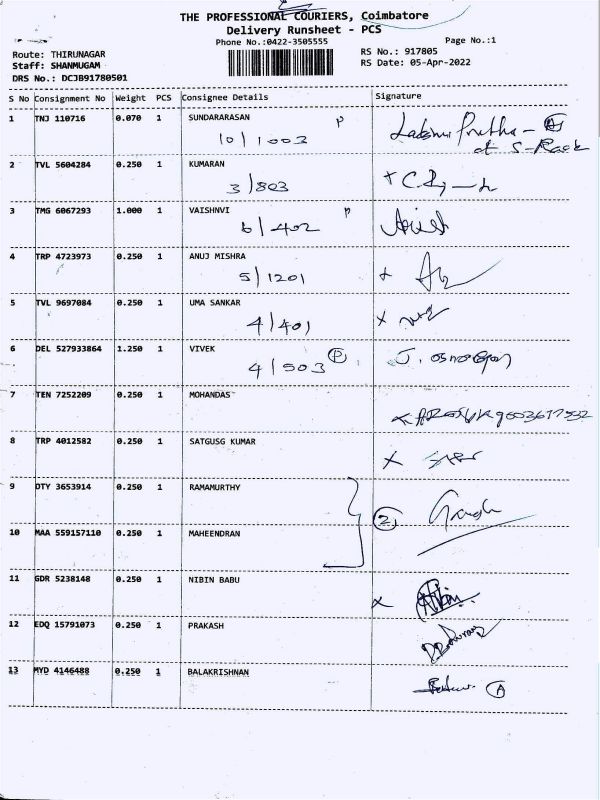 THE PROFESSIONAL COURIERS, Coimbatore
Delivery Runsheet - PCS
Phone No.:0422-3505555
Page No.:1
Route: THIRUNAGAR
RS No.: 917805
Staff: SHANMUGAM
RS Date: 05-Apr-2022
DRS No.: DCJB91780501
S No Consignment No Weight PCS Consignee Details Signature
1 TNJ 110716 0.070 1 SUNDARARASAN P
10/1003
2 TVL 5604284 0.250 1 KUMARAN
3/803
3 TMG 6067293 1.000 1 VAISHNVI P
6/402
4 TRP 4723973 0.250 1 ANUJ MISHRA
5/1201
5 TVL 9697084 0.250 1 UMA SANKAR
4/401
6 DEL 527933864 1.250 1 VIVEK P
4/503
7 TEN 7252209 0.250 1 MOHANDAS
8 TRP 4012582 0.250 1 SATGUSG KUMAR
9 DTY 3653914 0.250 1 RAMAMURTHY
2
10 MAA 559157110 0.250 1 MAHEENDRAN
11 GDR 5238148 0.250 1 NIBIN BABU
12 EDQ 15791073 0.250 1 PRAKASH
13 MYD 4146488 0.250 1 BALAKRISHNAN
A